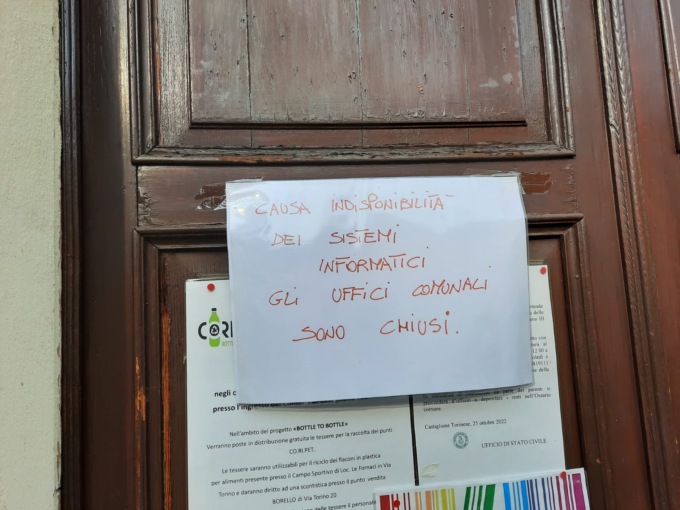 CAUSA INDISPONIBILITÀ
DEI SISTEMI
INFORMATICI
GLI UFFICI COMUNALI
SONO CHIUSI.
negli
presso l'ingresso
Nell'ambito del progetto «BOTTLE TO BOTTLE»
Verranno poste in distribuzione gratuita le tessere per la raccolta dei punti
CO.RI.PET.
Le tessere saranno utilizzabili per il riciclo dei flaconi in plastica
per alimenti presente presso il Campo Sportivo di Loc. Le Fornaci in Via
Torino e daranno diritto ad una scontistica presso il punto vendita
BORELLO di Via Torino 20
delle tessere il personale
Castiglione Torinese, 25 ottobre 2022
UFFICIO DI STATO CIVILE